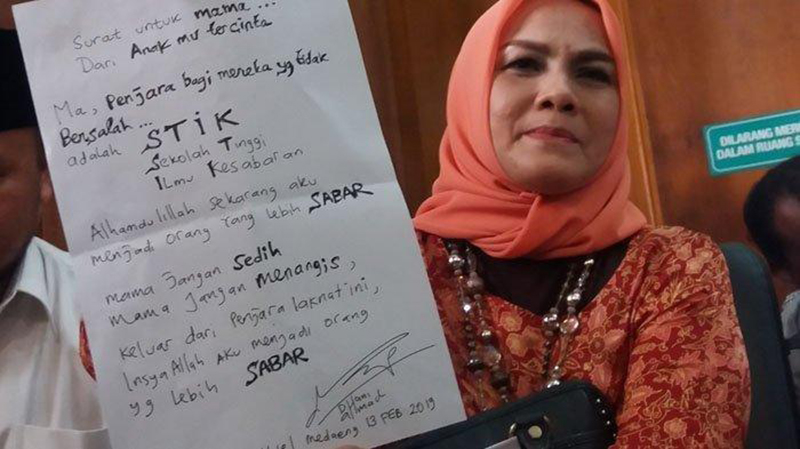 Surat untuk mama ...
Dari Anak mu tercinta
Ma, Penjara bagi mereka yg tidak
Bersalah ...
adalah STIK
Sekolah Tinggi
Ilmu Kesabaran
Alhamdulillah sekarang aku
menjadi orang yang lebih SABAR
mama Jangan Sedih
mama Jangan menangis,
keluar dari Penjara laknat ini,
InsyaAllah Aku menjadi orang
yg lebih SABAR
Dhani
Ahmad
medaeng 13 FEB 2019
DILARANG MER
DALAM RUANG S